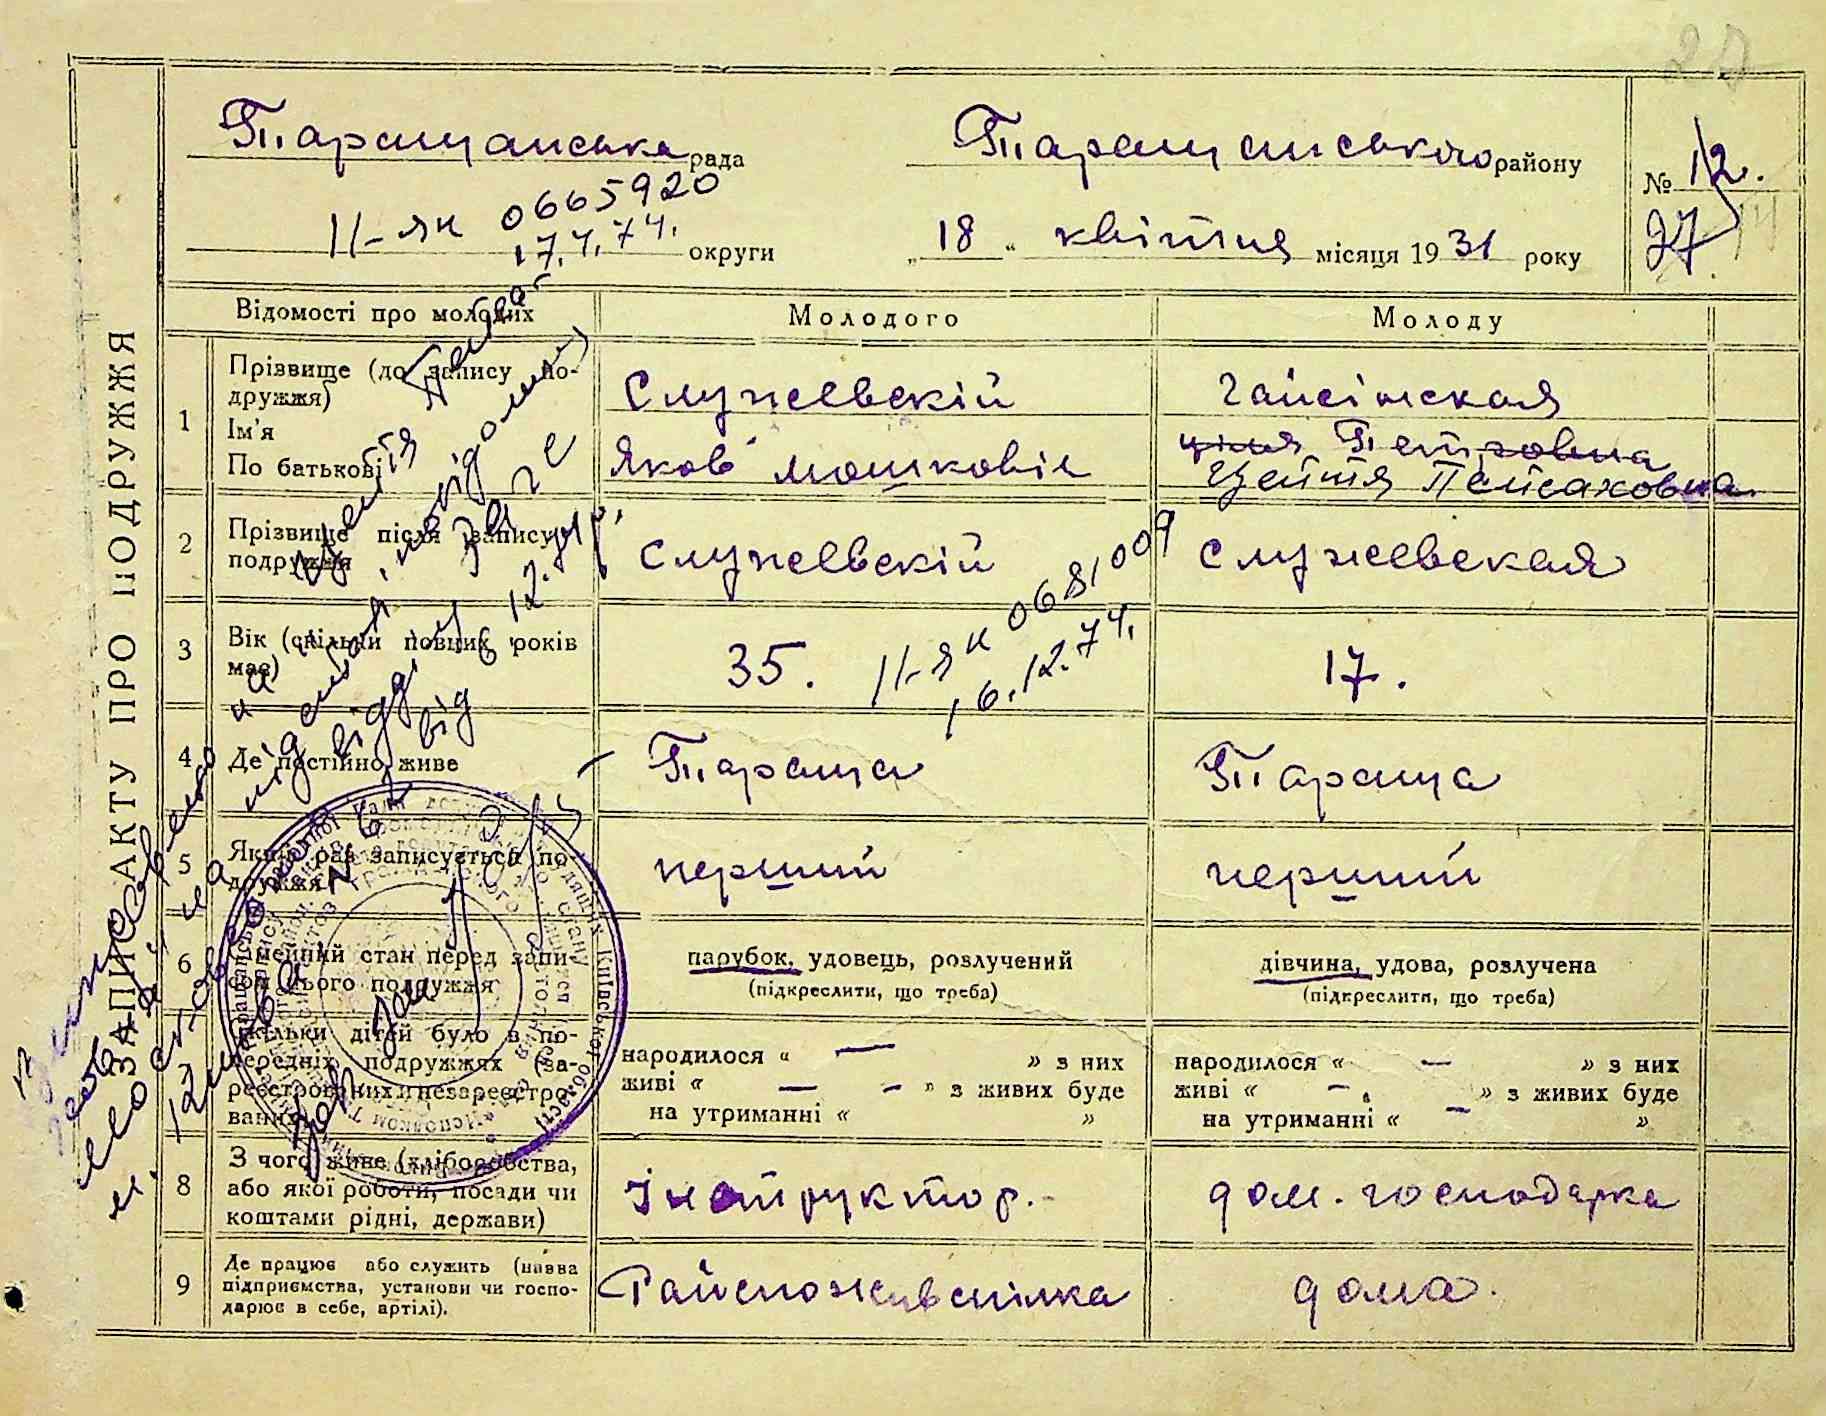 27
ЗАПИС АКТУ ПРО ПОДРУЖЖЯ
Таращанська рада
Таращанського району
№ 12.
27
II-ЯК 0665920
17.7.74.
округи
„18“ квітня місяця 1931 року
Відомості про молодих
Молодого
Молоду
1
Прізвище (до запису подружжя)
Ім'я
По батькові
Служевскій
Яков Мошковіч
Гайсінская
Ціля Петровна
Цейтя Пейсаховна
2
Прізвище після запису подружжя
Служевскій
Служевская
3
Вік (скільки повних років має)
35.
17.
II-ЯК 0681009
16.12.74.
4
Де постійно живе
Тараща
Тараща
5
Який раз записується подружжя
перший
перший
6
Сімейний стан перед записом цього подружжя
парубок, удовець, розлучений
(підкреслити, що треба)
дівчина, удова, розлучена
(підкреслити, що треба)
7
Скільки дітей було в попередніх подружжях (зареєстрованих і незареєстрованих)
народилося « — » з них
живі « — — » з живих буде
на утриманні « »
народилося « — » з них
живі « — » з живих буде
на утриманні « — »
8
З чого живе (хліборобства, або якої роботи, посади чи коштами рідні, держави)
Інструктор.
дом. господарка
9
Де працює або служить (назва підприємства, установи чи господарює в себе, артілі).
Райспоживспілка
дома.